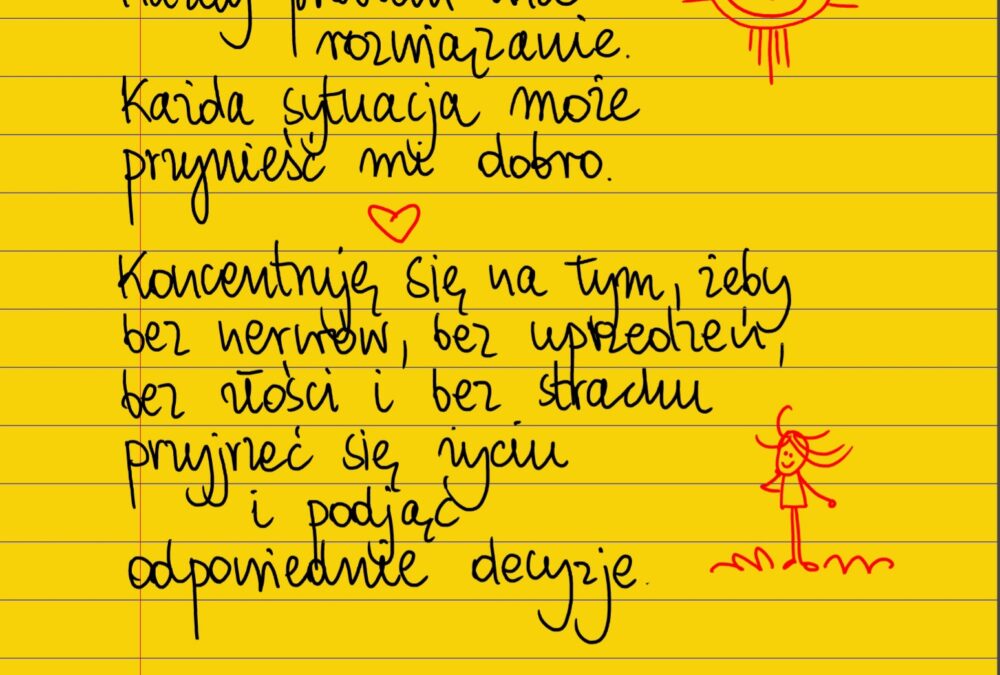 Każdy problem ma
rozwiązanie.
Każda sytuacja może
przynieść mi dobro.
Koncentruję się na tym, żeby
bez nerwów, bez uprzedzeń,
bez złości i bez strachu
przyjrzeć się życiu
i podjąć
odpowiednie decyzje.